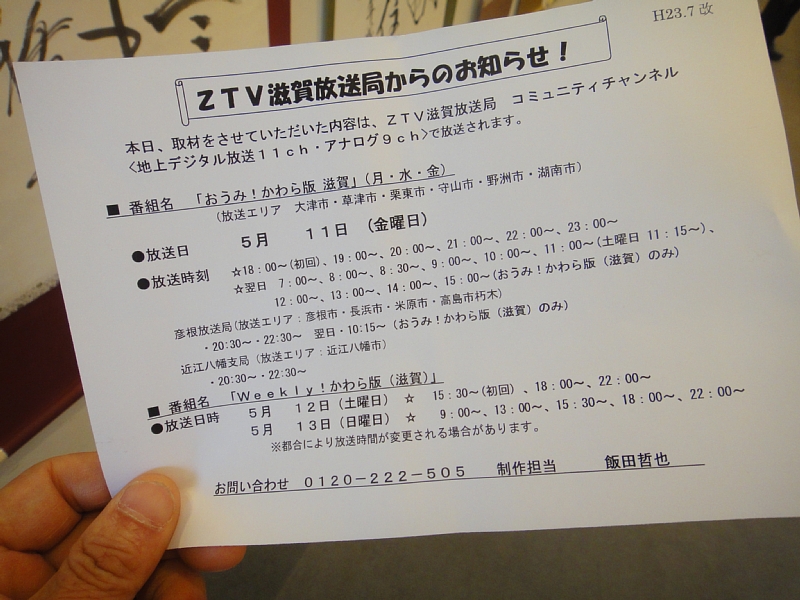 H23.7 改
ZTV滋賀放送局からのお知らせ！
本日、取材をさせていただいた内容は、ZTV滋賀放送局 コミュニティチャンネル
〈地上デジタル放送11ch・アナログ9ch〉で放送されます。
■ 番組名 「おうみ！かわら版 滋賀」（月・水・金）
（放送エリア 大津市・草津市・栗東市・守山市・野洲市・湖南市）
●放送日 5月 11日 （金曜日）
●放送時刻 ☆18：00～（初回）、19：00～、20：00～、21：00～、22：00～、23：00～
☆翌日 7：00～、8：00～、8：30～、9：00～、10：00～、11：00～（土曜日 11：15～）、
12：00～、13：00～、14：00～、15：00～（おうみ！かわら版（滋賀）のみ）
彦根放送局（放送エリア：彦根市・長浜市・米原市・高島市朽木）
・20：30～・22：30～ 翌日・10：15～（おうみ！かわら版（滋賀）のみ）
近江八幡支局（放送エリア：近江八幡市）
・20：30～・22：30～
■ 番組名 「Weekly！かわら版（滋賀）」
●放送日時 5月 12日（土曜日） ☆ 15：30～（初回）、18：00～、22：00～
5月 13日（日曜日） ☆ 9：00～、13：00～、15：30～、18：00～、22：00～
※都合により放送時間が変更される場合があります。
お問い合わせ 0120－222－505 制作担当 飯田哲也